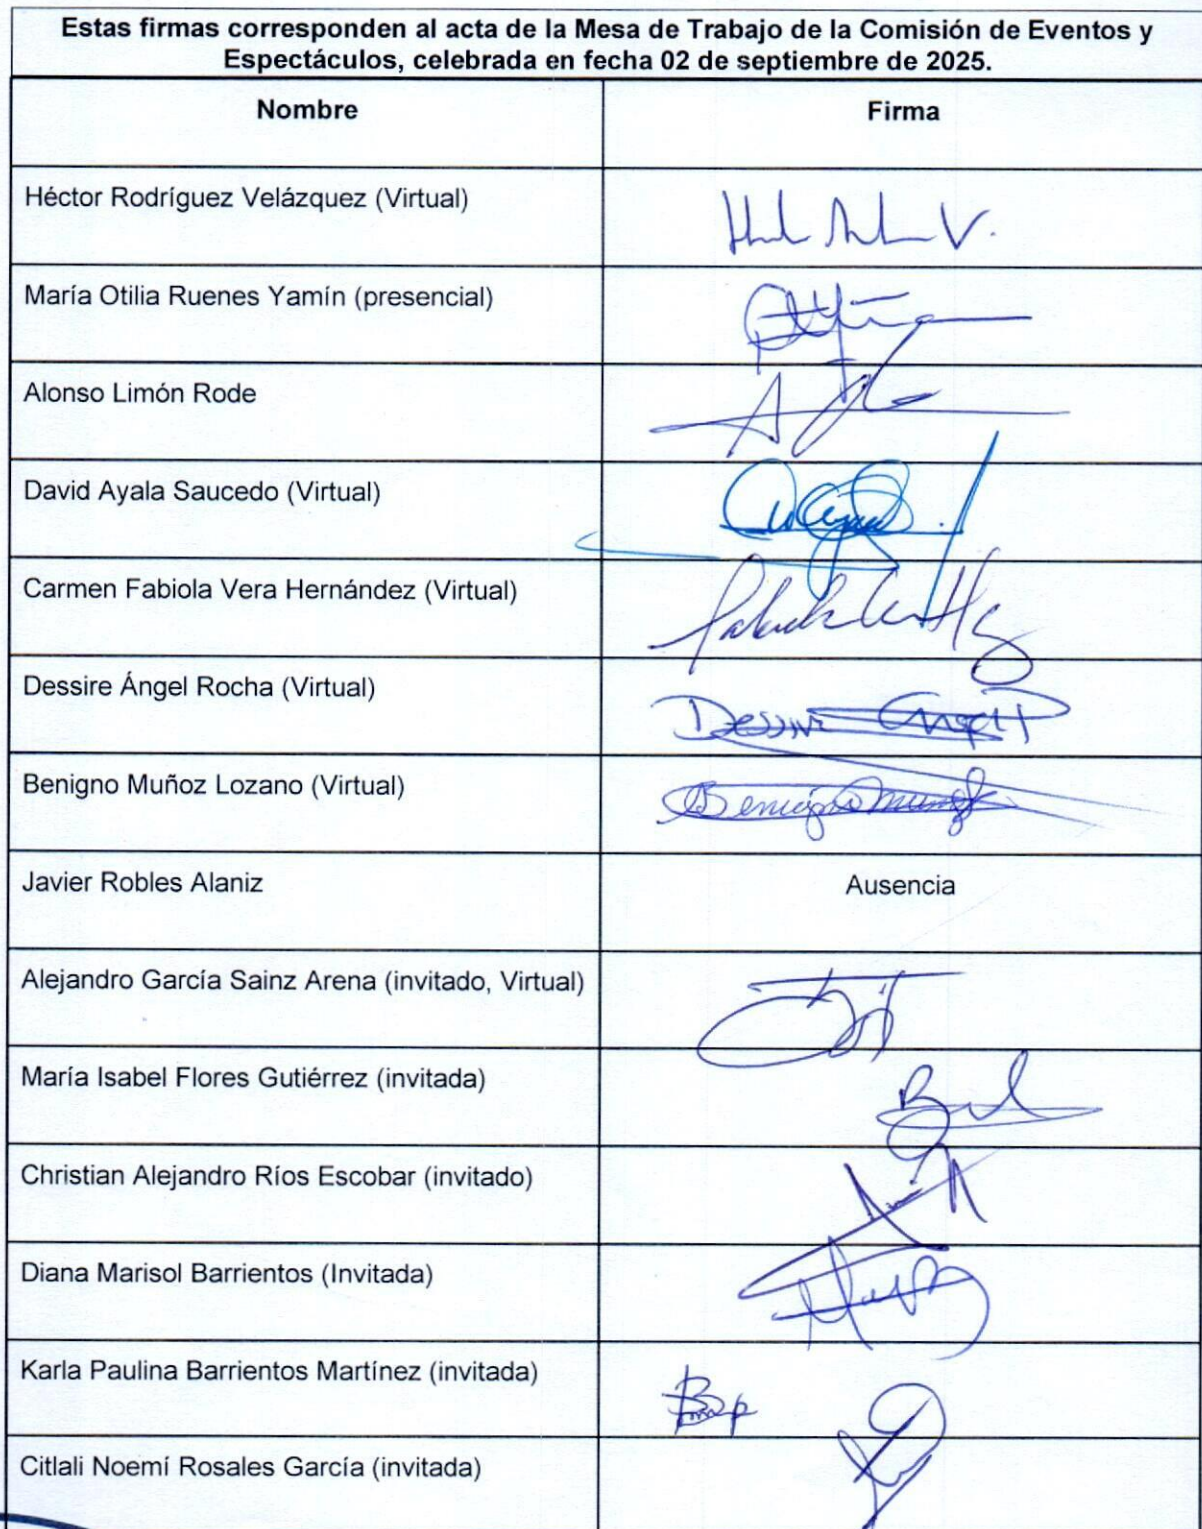 Estas firmas corresponden al acta de la Mesa de Trabajo de la Comisión de Eventos y
Espectáculos, celebrada en fecha 02 de septiembre de 2025.
Nombre Firma
Héctor Rodríguez Velázquez (Virtual)
María Otilia Ruenes Yamín (presencial)
Alonso Limón Rode
David Ayala Saucedo (Virtual)
Carmen Fabiola Vera Hernández (Virtual)
Dessire Ángel Rocha (Virtual)
Benigno Muñoz Lozano (Virtual)
Javier Robles Alaniz Ausencia
Alejandro García Sainz Arena (invitado, Virtual)
María Isabel Flores Gutiérrez (invitada)
Christian Alejandro Ríos Escobar (invitado)
Diana Marisol Barrientos (Invitada)
Karla Paulina Barrientos Martínez (invitada)
Citlali Noemí Rosales García (invitada)